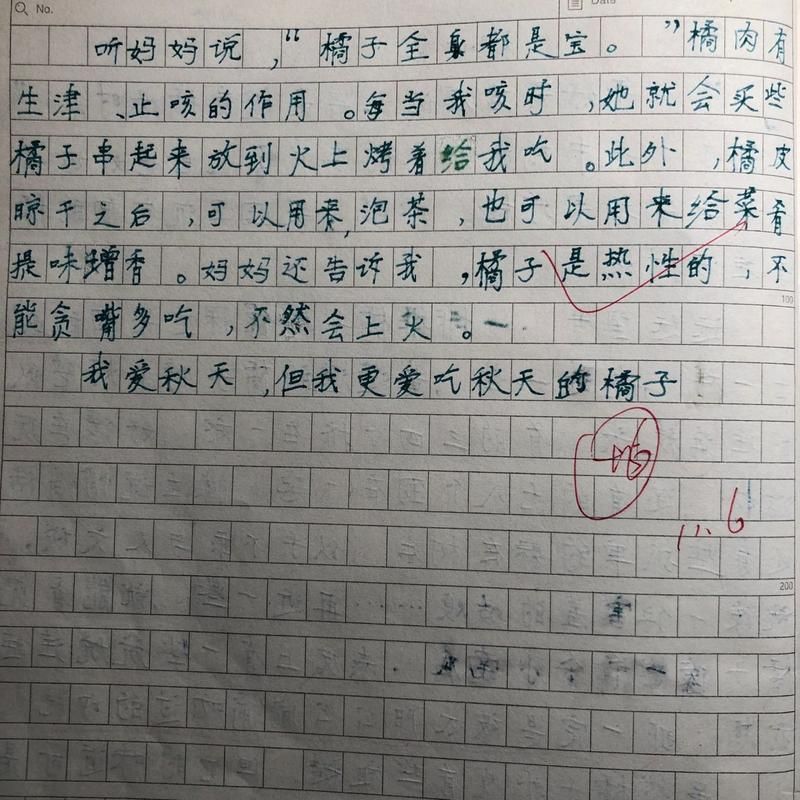 No.
Date
听妈妈说，“橘子全身都是宝。”橘肉有
生津、止咳的作用。每当我咳时，她就会买些
橘子串起来放到火上烤着给我吃。此外，橘皮
晾干之后，可以用来泡茶，也可以用来给菜肴
提味增香。妈妈还告诉我，橘子是热性的，不
100
能贪嘴多吃，不然会上火。
我爱秋天，但我更爱吃秋天的橘子
11.6
200